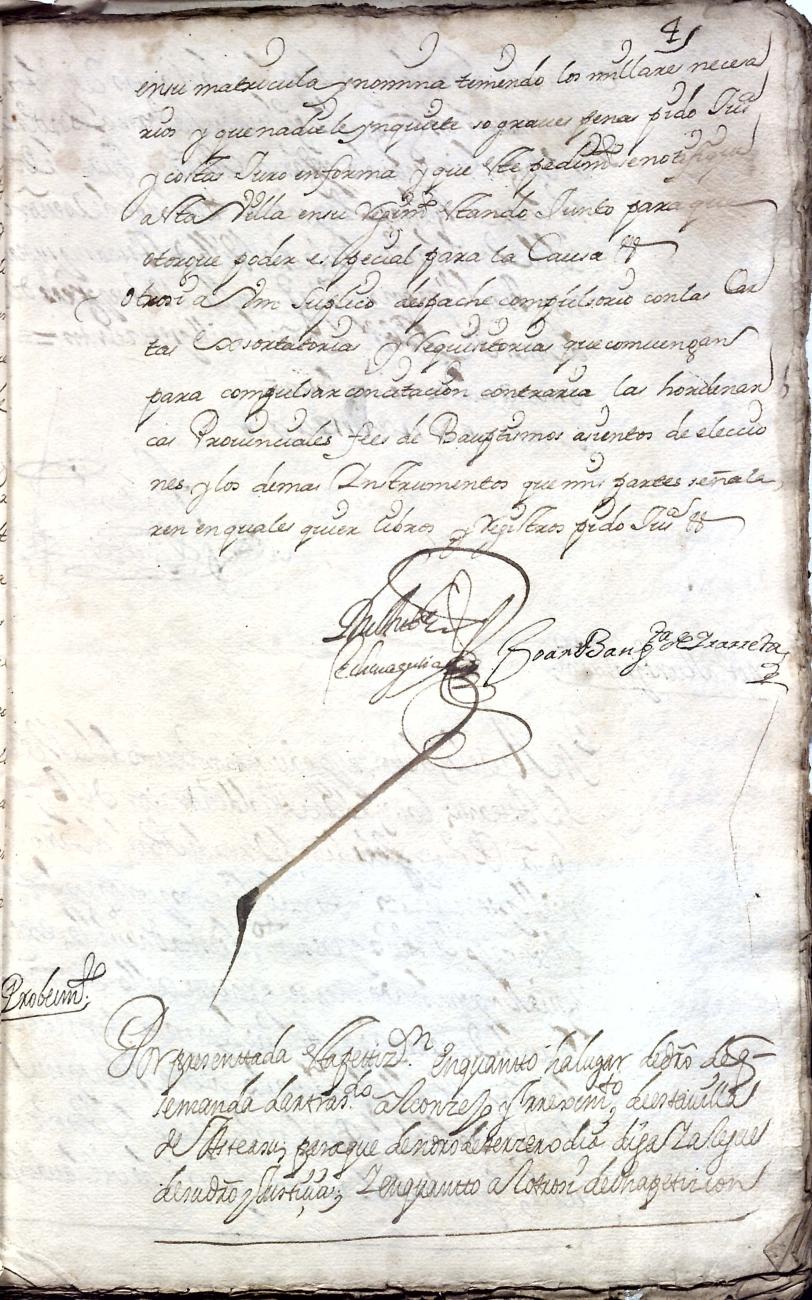 4
en su matricula y nomina teniendo los millares necesa
rios y que nadie le ynquiete so graves penas pido Jusa
y costas Juro en forma y que este pedimto se notifique
a esta Villa en su Regimto estando Junto para que
otorgue poder especial para la Causa &
otrosi a Vm suplico despache compulsorio con las Car
tas Exsortatorias y Requisitorias que convengan
para compulsar con citacion contraria las hordenan
cas Provinciales fees de Bauptismos asientos de eleccio
nes y los demas Instrumentos que mis partes señala
ren en quales quier libros y Registros pido Jusa &
Joan Baupta de Irarreta
Probeimto
Por presentada esta pettizon enquantto ha lugar de dro de q
se manda dar trasdo al conzejo y rreximto de esta villa
de Asteasu para que dentro de terzero dia diga y alegue
de su dro y Justizia y enquantto al otrosi de dha petizion